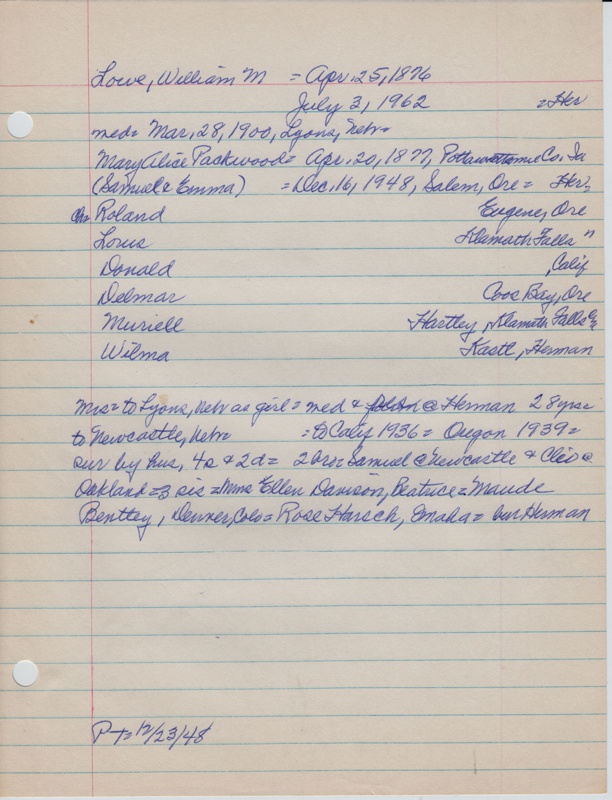 Lowe, William M = Apr. 25, 1876
July 3, 1962 = Her
med = Mar. 28, 1900, Lyons, Nebr =
Mary Alice Packwood = Apr. 20, 1877, Pottawattomie Co. Ia
(Samuel & Emma) = Dec. 16, 1948, Salem, Ore = Her
Ch = Roland Eugene, Ore
Lorus Klamath Falls "
Donald , Calif
Delmar Coos Bay, Ore
Muriell Hartley, Klamath Falls
Wilma Kastl, Herman
Mrs = to Lyons, Nebr as girl = med & @ Herman 28 yrs =
to Newcastle, Nebr = = to Calif 1936 = Oregon 1939 =
sur by hus, 4s & 2d = 2 bro = Samuel @ Newcastle & @
Oakland = 3 sis = Mrs Ellen Davison, Beatrice = Maude
Bentley, Denver, Colo = Rose Harsch, Omaha = bur Herman
PT = 12/23/48